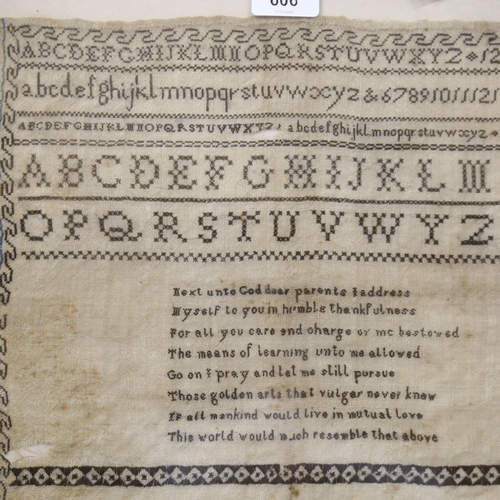 606
ABCDEFGHIJKLMNOPQRSTUVWXYZ 12
abcdefghijklmnopqrstuvwxyz & 6789101112
ABCDEFGHIJKLMNOPQRSTUVWXYZ abcdefghijklmnopqrstuvwxyz
ABCDEFGHIJKLM
OPQRSTUVWYZ
Next unto God dear parents I address
Myself to you in humble thankfulness
For all you care and charge or me bestowed
The means of learning unto me allowed
Go on I pray and let me still pursue
Those golden arts that vulgar never knew
If all mankind would live in mutual love
This world would much resemble that above